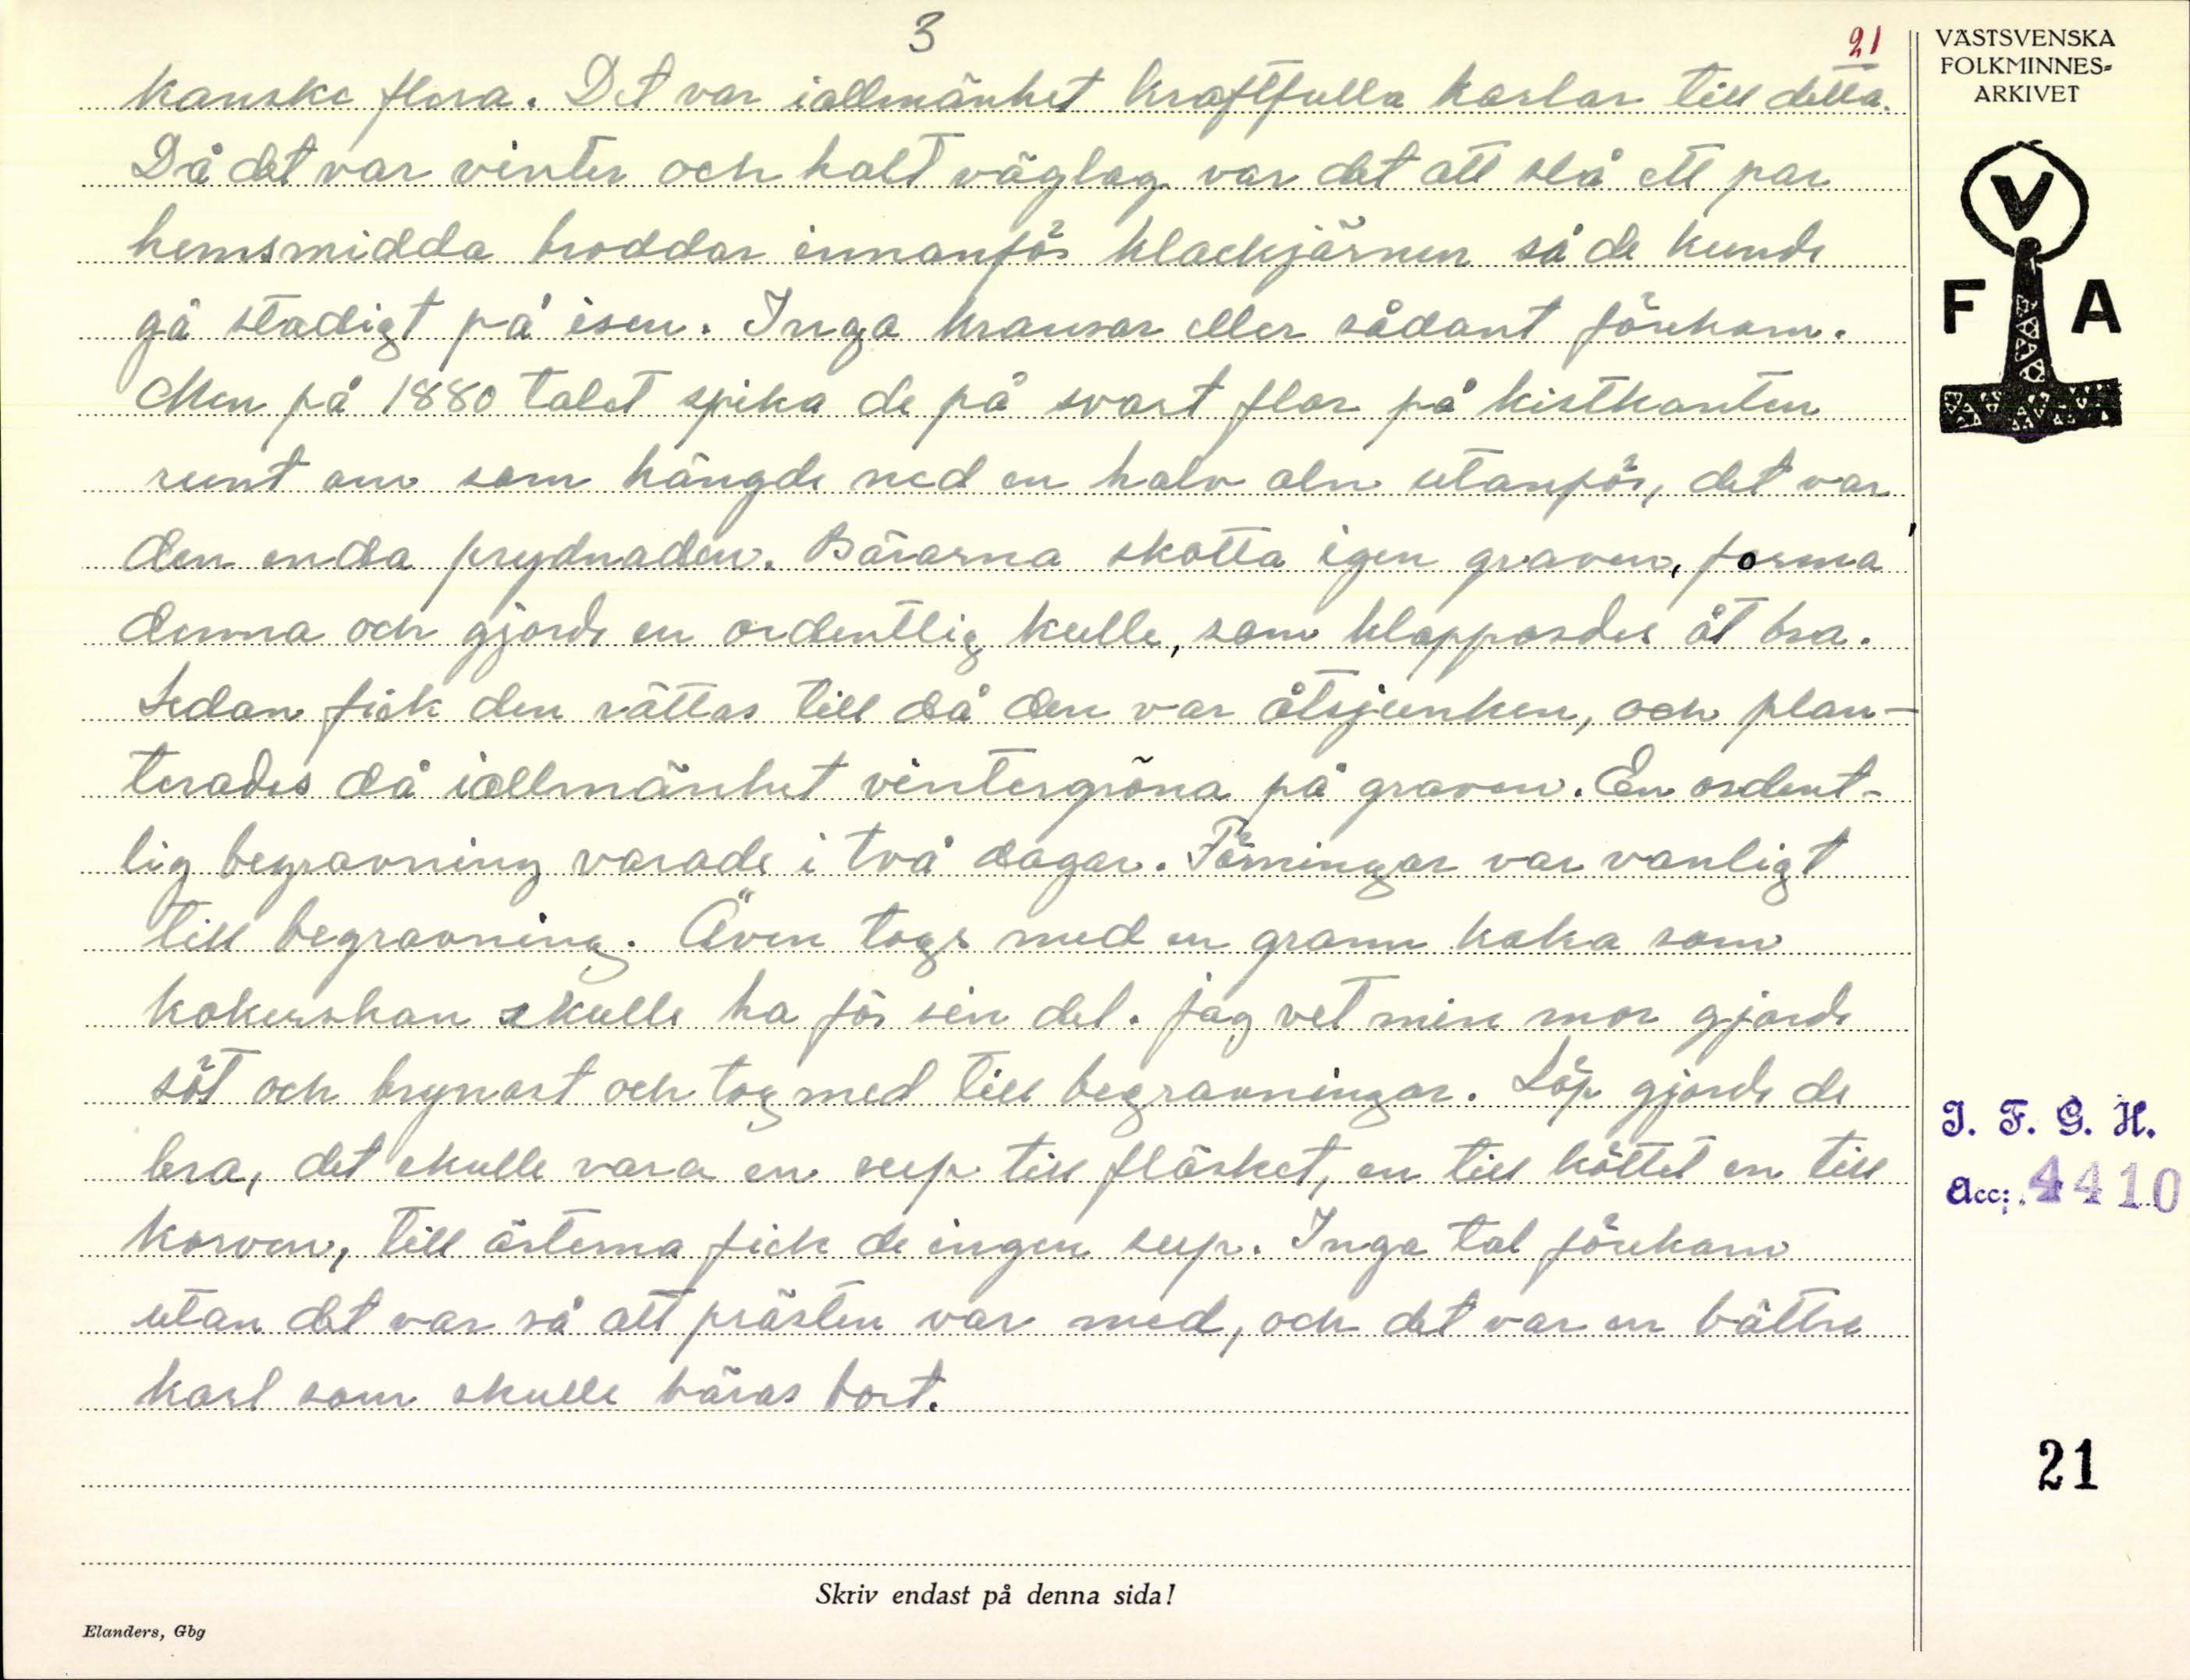 3
21
kanske flera. Det var iallmänhet kraftfulla karlar till detta.
Då det var vinter och halt väglag var det att slå ett par
hemsmidda broddar innanför klackjärnen så de kunde
gå stadigt på isen. Inga kransar eller sådant förekom.
Men på 1880 talet spika de på svart flor på kistkanten
runt om som hängde ned en halv aln utanför, det var
den enda prydnaden. Bärarna skotta igen graven, forma
denna och gjorde en ordentlig kulle, som klappasdes åt bra.
Sedan fick den rättas till då den var åtsjunken, och plan-
terades då iallmänhet vintergröna på graven. En ordent-
lig begravning varade i två dagar. Förningar var vanligt
till begravning. Även togs med en grann kaka som
kokerskan skulle ha för sin del. jag vet min mor gjorde
söt och brynost och tog med till begravningar. Löp gjorde de
bra, det skulle vara en sup till fläsket, en till köttet en till
korven, till ärterna fick de ingen sup. Inga tal förekom
utan det var så att prästen var med, och det var en bättre
karl som skulle bäras bort.
Skriv endast på denna sida!
Elanders, Gbg
VÄSTSVENSKA
FOLKMINNES-
ARKIVET
V
F A
I. F. G. H.
Acc: 4410
21